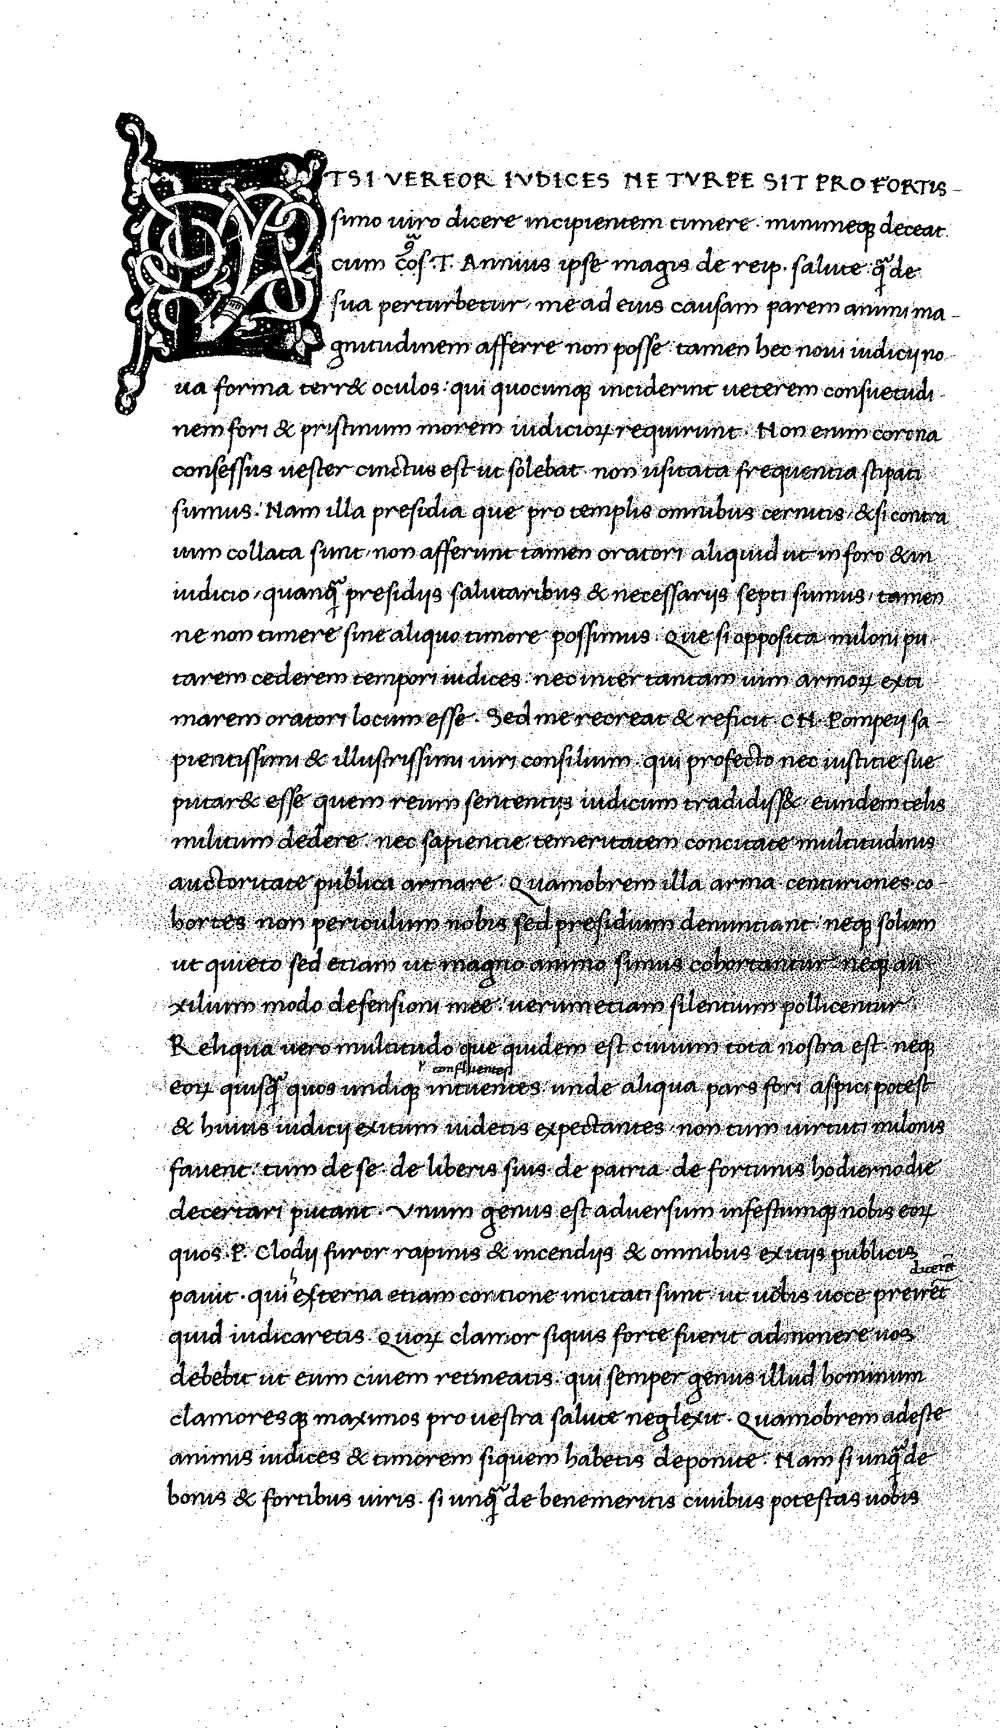 ETSI VEREOR IVDICES NE TVRPE SIT PRO FORTIS-
simo uiro dicere incipientem timere · minimeq; deceat
cum cos̃ .T. Annius ipse magis de reip. salute q̃ de
sua perturbetur / me ad eius causam parem animi ma-
gnitudinem afferre non posse · tamen hec noui iudicij no
ua forma terr& oculos : qui quocunq; inciderint ueterem consuetudi
nem fori & pristinum morem iudicioꝝ requirunt · Non enim corona
consessus uester cinctus est ut solebat · non usitata frequentia stipati
sumus. Nam illa presidia que pro templis omnibus cernitis / & si contra
uim collata sunt / non afferunt tamen oratori aliquid ut in foro & in
iudicio / quanq̃ presidijs salutaribus & necessarijs septi sumus / tamen
ne non timere sine aliquo timore possimus . Que si opposita miloni pu
tarem cederem tempori iudices · nec inter tantam uim armoꝝ exti
marem oratori locum esse · Sed me recreat & reficit CN. Pompeij sa-
pientissimi & illustrissimi uiri consilium · qui profecto nec iustitie sue
putar& esse quem reum sententijs iudicum tradidiss& · eundem telis
militum dedere · nec sapientie temeritatem concitate multitudinis
auctoritate publica armare · Quamobrem illa arma centuriones co-
hortes non periculum nobis sed presidium denuntiant · neq; solum
ut quieto sed etiam ut magno animo simus cohortantur · neq; au
xilium modo defensioni mee · uerumetiam silentium pollicentur
Reliqua uero multitudo que quidem est ciuium tota nostra est · neq;
confluentes
eoꝝ quisq̃ quos undiq; intuentes unde aliqua pars fori aspici potest
& huius iudicij exitum uidetis expectantes non cum uirtuti milonis
fauent · tum de se de liberis suis de patria de fortunis hodierno die
decertari putant · Vnum genus est adversum infestumq; nobis eoꝝ
quos .P. Clodij furor rapinis & incendijs & omnibus exitijs publicis
pauit · qui externa etiam contione incitati sunt ut uobis uoce preirẽt
quid iudicaretis · Quoꝝ clamor siquis forte fuerit admonere uos
debebit ut eum ciuem retineatis · qui semper genus illud hominum
clamoresq; maximos pro uestra salute neglexit · Quamobrem adeste
animis iudices & timorem siquem habetis deponite · Nam si unq̃ de
bonis & fortibus uiris · si unq̃ de benemeritis ciuibus potestas uobis